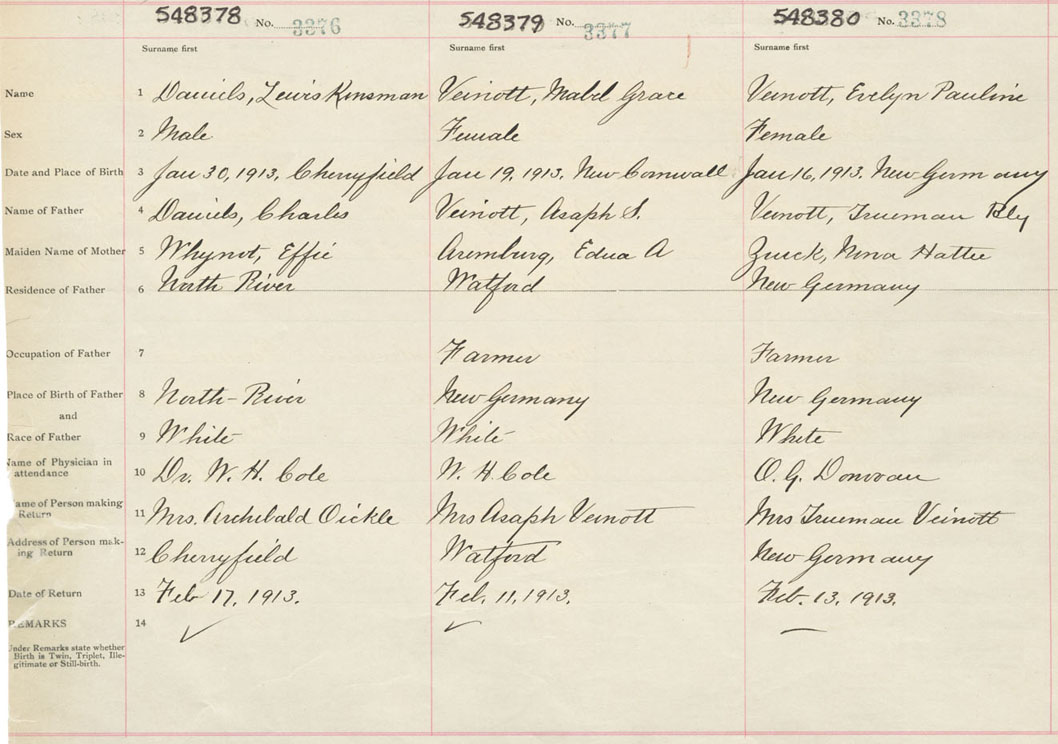 548378 No. 3376 548379 No. 3377 548380 No. 3378
Surname first Surname first Surname first
Name 1 Daniels, Lewis Kinsman Veinott, Mabel Grace Veinott, Evelyn Pauline
Sex 2 Male Female Female
Date and Place of Birth 3 Jan 30, 1913, Cherryfield Jan 19, 1913. New Cornwall Jan 16, 1913. New Germany
Name of Father 4 Daniels, Charles Veinott, Asaph S. Veinott, Trueman
Maiden Name of Mother 5 Whynot, Effie Aremburg, Edna A Zwick, Nina Hattie
Residence of Father 6 North River Watford New Germany
Occupation of Father 7 Farmer Farmer
Place of Birth of Father 8 North-River New Germany New Germany
and
Race of Father 9 White White White
Name of Physician in
attendance 10 Dr. W. H. Cole W. H. Cole O. G. Donovan
ame of Person making
Return 11 Mrs. Archibald Oickle Mrs Asaph Veinott Mrs Trueman Veinott
Address of Person mak-
ing Return 12 Cherryfield Watford New Germany
Date of Return 13 Feb 17, 1913. Feb. 11, 1913. Feb. 13, 1913.
REMARKS 14
Under Remarks state whether
Birth is Twin, Triplet, Ille-
gitimate or Still-birth.